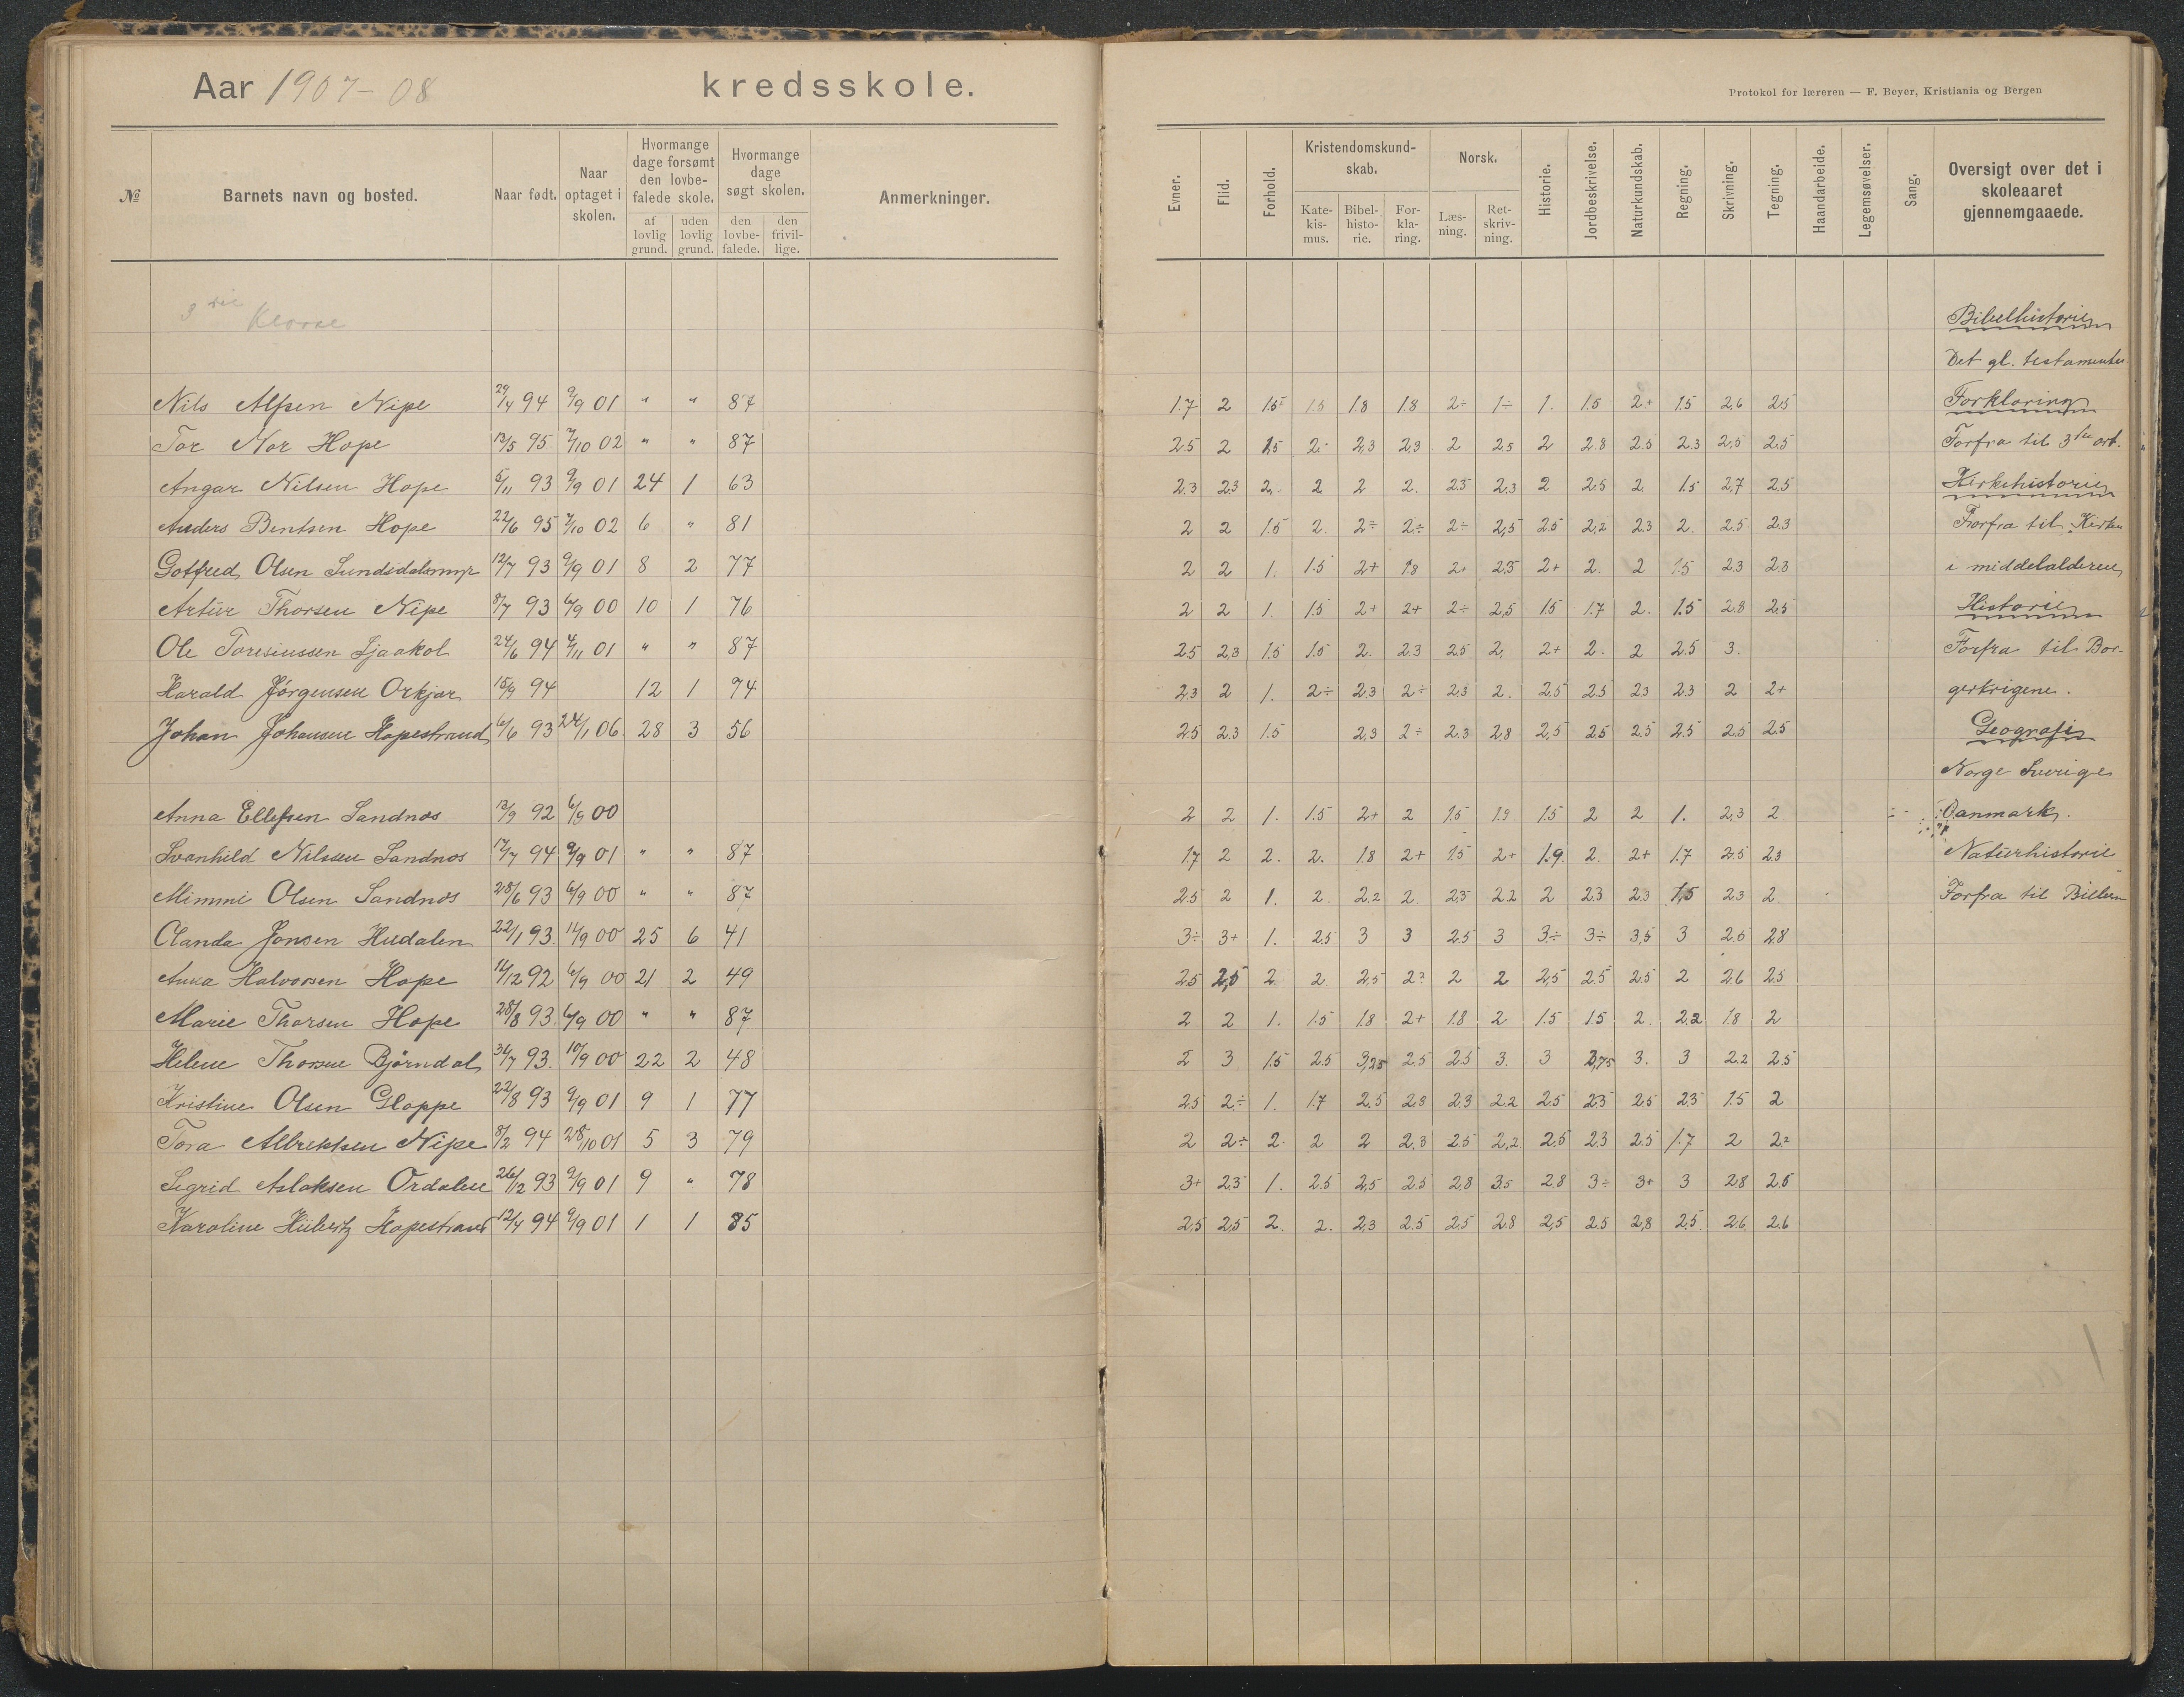 Aar 1907-08 kredsskole.
Protokol for læreren — F. Beyer, Kristiania og Bergen
№ Barnets navn og bosted. Naar født. Naar optaget i skolen. Hvormange dage forsømt den lovbefalede skole. af lovlig grund. uden lovlig grund. Hvormange dage søgt skolen. den lovbefalede. den frivillige. Anmerkninger. Evner. Flid. Forhold. Kristendomskundskab. Katekismus. Bibelhistorie. Forklaring. Norsk. Læsning. Retskrivning. Historie. Jordbeskrivelse. Naturkundskab. Regning. Skrivning. Tegning. Haandarbeide. Legemsøvelser. Sang. Oversigt over det i skoleaaret gjennemgaaede.
3die Klasse
Bibelhistorie
Det gl. testamente
Nils Alfsen Nipe 29/4 94 9/9 01 " " 87 1.7 2 1.5 1.5 1.8 1.8 2÷ 1÷ 1. 1.5 2+ 1.5 2,6 2.5 Forklaring
Tor Nor Hope 13/5 95 7/10 02 " " 87 2.5 2 1.5 2.- 2,3 2,3 2 2.5 2 2.8 2.5 2.3 2,5 2.5 Forfra til 3die art.
Angar Nilsen Hope 5/11 93 9/9 01 24 1 63 2.3 2.3 2. 2 2 2. 2.5 2,3 2 2.5 2. 1.5 2,7 2.5 Kirkehistorie
Anders Bentsen Hope 22/6 95 7/10 02 6 " 81 2 2 1.5 2. 2÷ 2÷ 2÷ 2,5 2.5 2,2 2.3 2. 2.5 2.3 Forfra til Kirken
Gotfred Olsen Sundsdalsmyr 12/7 93 9/9 01 8 2 77 2 2 1. 1.5 2+ 1.8 2+ 2.5 2+ 2. 2 1.5 2.3 2.3 i middelalderen
Artur Thorsen Nipe 8/7 93 6/9 00 10 1 76 2 2 1. 1.5 2+ 2+ 2÷ 2,5 1.5 1.7 2. 1.5 2.8 2.5 Historie
Ole Toresiussen Sjaakol 24/6 94 4/11 01 " " 87 2.5 2,3 1.5 1.5 2. 2.3 2.5 2. 2+ 2. 2 2.5 3. Forfra til Bor-
Harald Jørgensen Orkjær 15/9 94 12 1 74 2.3 2 1. 2÷ 2,3 2÷ 2,3 2. 2,5 2.5 2.3 2.3 2 2+ gerkrigene.
Johan Johansen Hopestrand 6/6 93 24/1 06. 28 3 56 2.5 2.3 1.5 2,3 2÷ 2.3 2,8 2,5 2.5 2.5 2.5 2.5 2.5 Geografi
Norge Sverige
Anna Ellefsen Sandnæs 13/9 92 6/9 00 2 2 1. 1.5 2+ 2 1.5 1.9 1.5 2 2 1. 2,3 2 Danmark.
Svanhild Nilssen Sandnæs 17/7 94 9/9 01 " " 87 1.7 2 2. 2. 1.8 2+ 1.5 2+ 1.9. 2. 2+ 1.7 2.5 2.3 Naturhistorie
Mimmi Olsen Sandnæs 28/6 93 6/9 00 " " 87 2.5 2 1. 2. 2.2 2. 2.5 2.2 2 2.3 2.3 1,5 2.3 2 Forfra til Billerne
Olanda Jonsen Hudalen 22/1 93. 11/9 00 25 6 41 3÷ 3+ 1. 2.5 3 3 2.5 3 3÷ 3÷ 3,5 3 2.5 2.8
Anna Halvorsen Hope 14/12 92 6/9 00 21 2 49 2.5 2,5 2. 2. 2,5 2.2 2 2 2,5 2.5 2.5 2 2.6 2.5
Marie Thorsen Hope 28/8 93. 6/9 00 " " 87 2 2 1. 1.5 1.8 2+ 1.8 2 1.5 1.5 2. 2.2 1.8 2
Helene Thorsen Bjørndal 31/7 93. 10/9 00 22 2 48 2 3 1.5 2.5 3,25 2.5 2.5 3. 3 2,75 3. 3 2.2 2.5
Kristine Olsen Gloppe 22/8 93 9/9 01 9 1 77 2.5 2÷ 1. 1.7 2.5 2.3 2.3 2.2 2.5 2.3 2.5 2.3 1.5 2
Tora Albrektsen Nipe 8/2 94 28/10 01 5 3 79 2 2÷ 2. 2 2 2.3 2.5 2,2 2.5 2.3 2.5 1.7 2 2.2
Sigrid Aslaksen Ordalen 26/12 93 9/9 01 9 " 78 3+ 2.3 1. 2.5 2,5 2.5 2,8 3.5 2.8 3÷ 3+ 3 2.8 2.5
Karoline Hübertz Hopestrand 12/4 94 9/9 01 1 1 85 2,5 2,5 2. 2. 2,3 2.5 2.5 2.8 2,5 2.5 2,8 2.5. 2.6 2.6